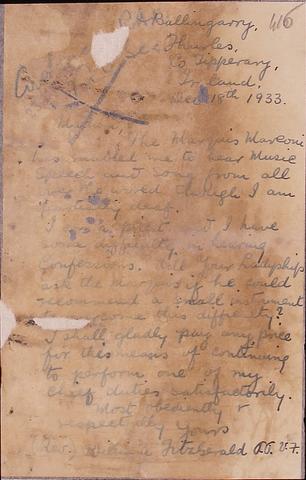 Ballingarry, 416
Thurles,
Co Tipperary,
Ireland,
Dec 18th 1933.
The Marquis Marconi
has enabled me to hear Music
Speech and Song from all
over the world though I am
deaf.
I am a priest I have
some difficulty in hearing
Confessions. Will Your Ladyship
ask the Marquis if he could
recommend a small instrument
to overcome this difficulty?
I shall gladly pay any price
for this means of continuing
to perform one of my
chief duties satisfactorily.
Most obediently &
respectfully Yours
Rev. Fitzgerald